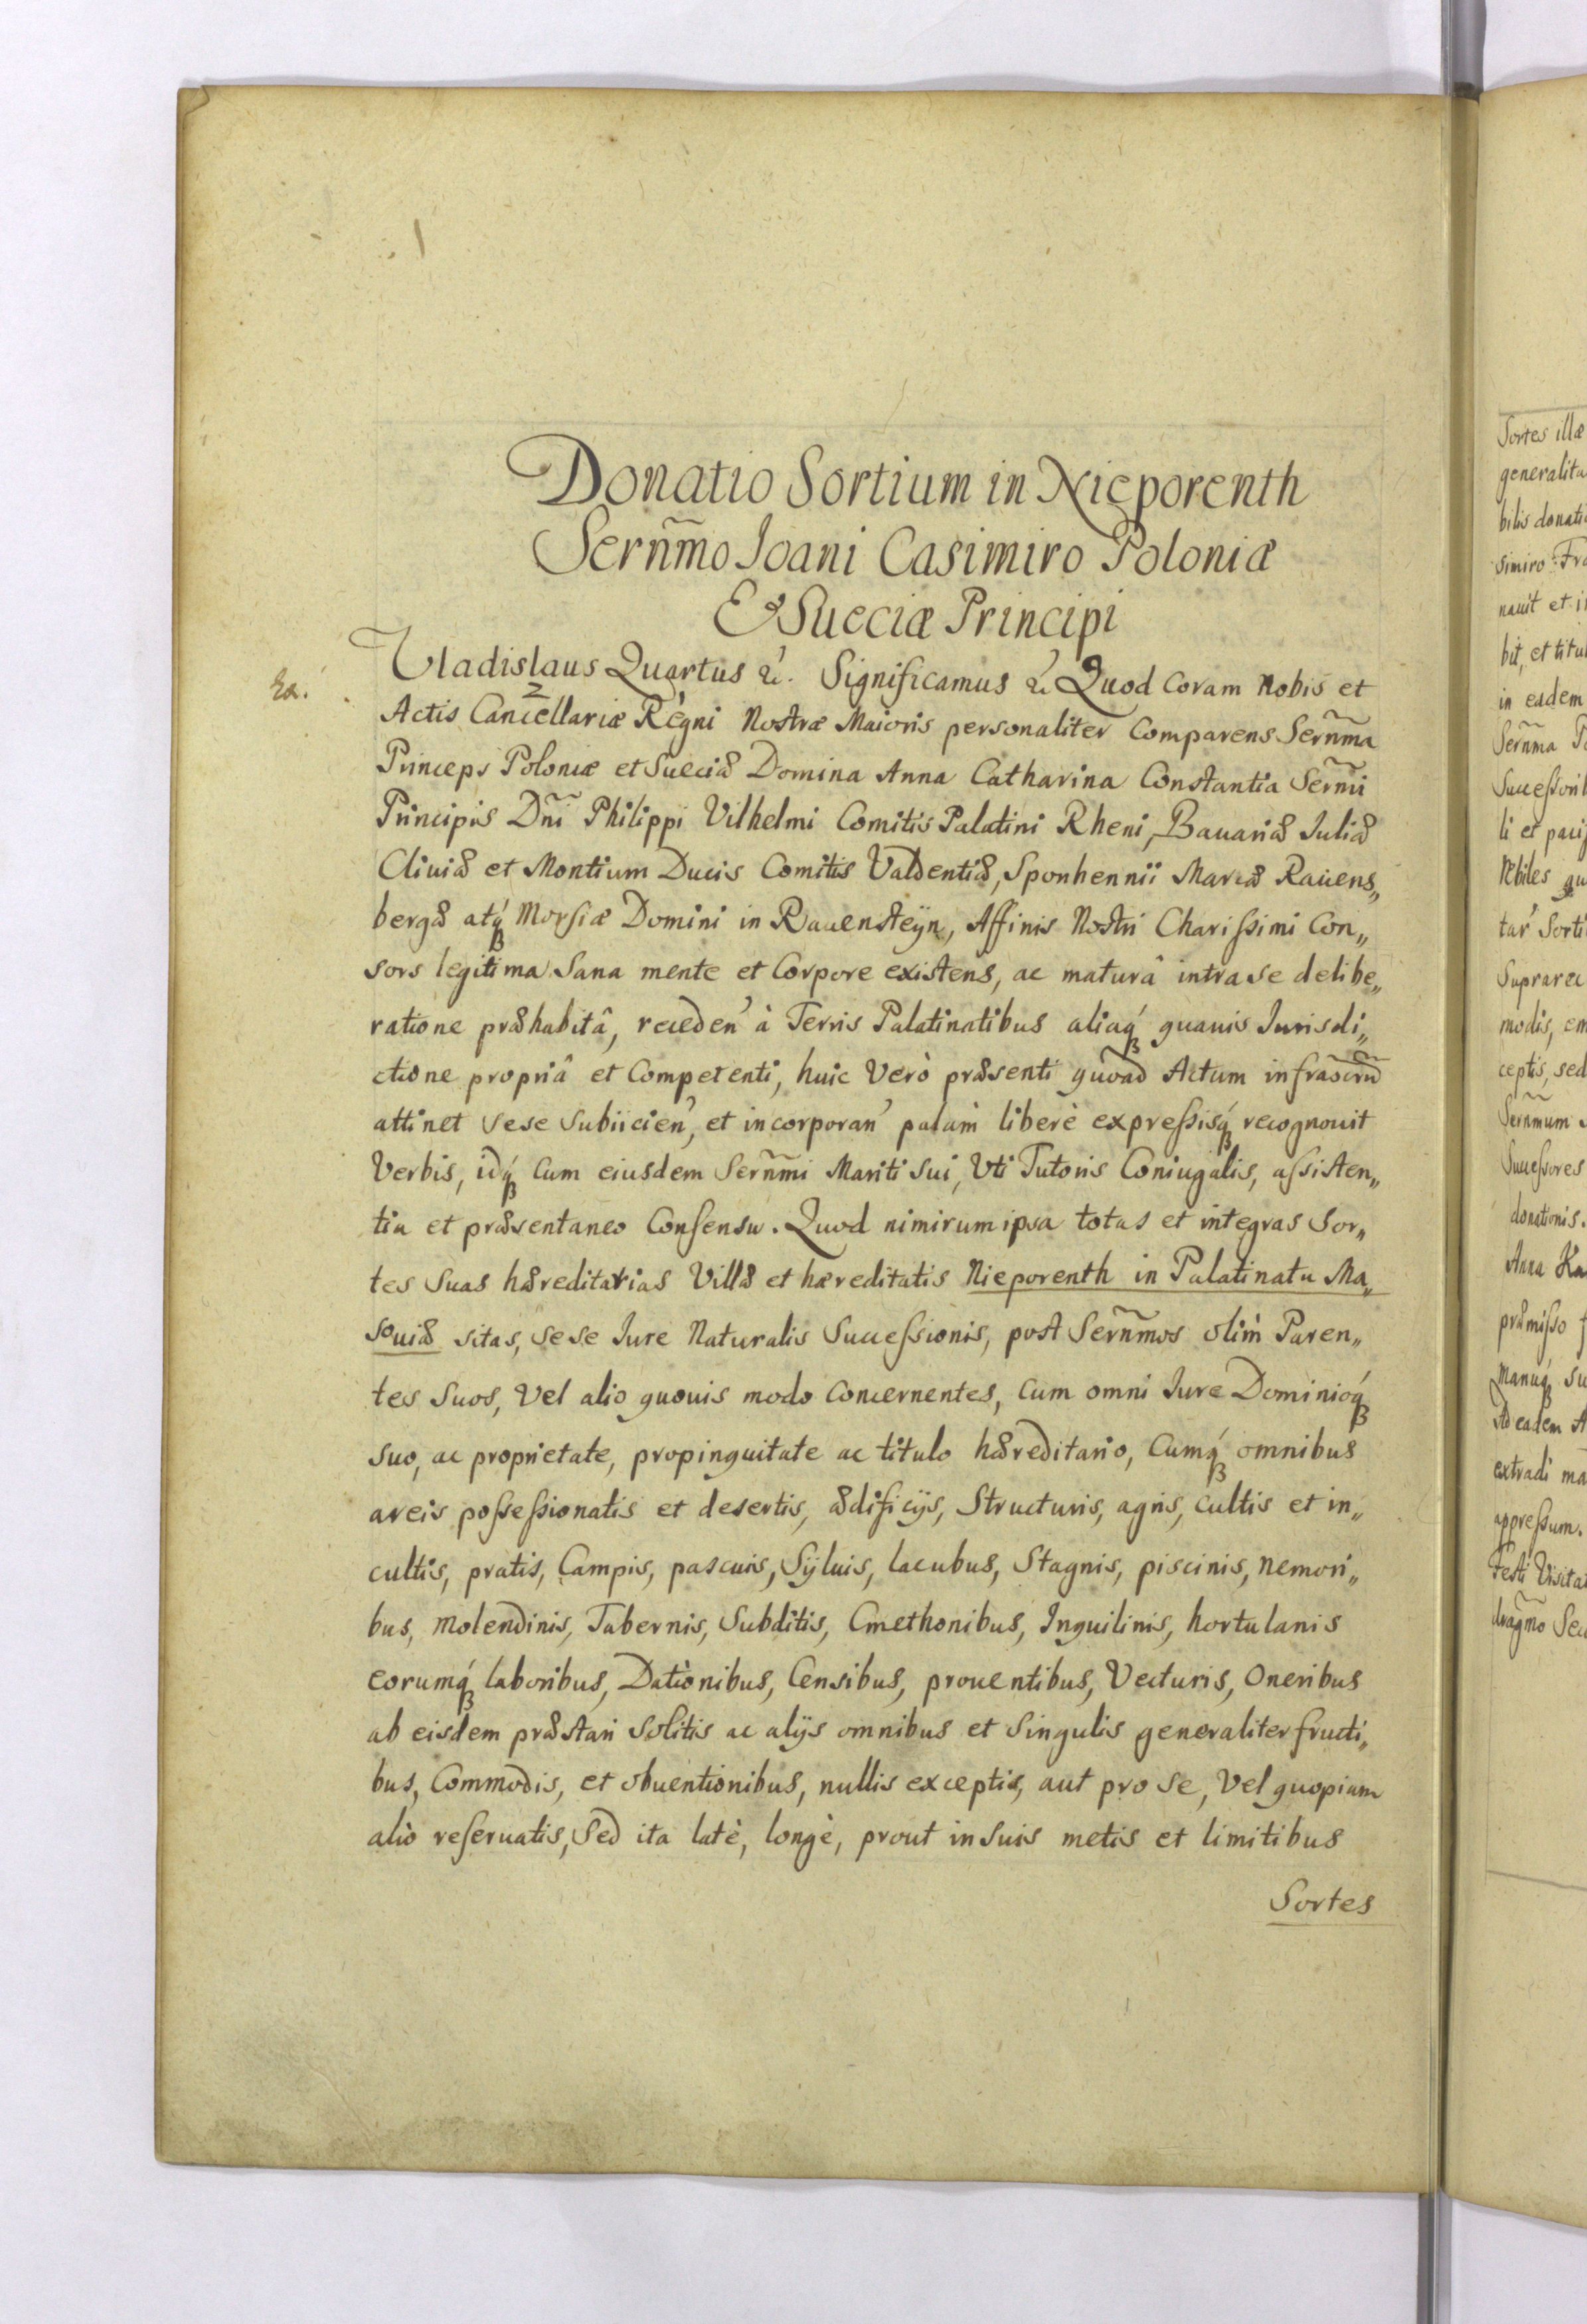 Donatio Sortium in Nieporenth
Serñmo Ioani Casimiro Poloniæ
Et Sueciæ Principi
Vladislaus Quartus &c. Significamus &c Quod Coram Nobis et
Actis Cancellariæ Regni Nostræ Maioris personaliter Comparens Serñma
Princeps Poloniæ et Sueciæ Domina Anna Catharina Constantia Serñmi
Principis Dñi Philippi Vilhelmi Comitis Palatini Rheni, Bauariæ Iuliæ
Cliuiæ et Montium Ducis Comitis Valdentiæ, Sponhennii Marcæ Rauens„
bergæ atq́ Morsiæ Domini in Rauensteÿn, Affinis Nostri Charissimi Con„
sors legitima Sana mente et Corpore existens, ac maturâ intra se delibe„
ratione præhabitâ, receden̛ à Terris Palatinatibus aliaq́ quauis Iurisdi„
ctione propriâ et Competenti, huic Verò præsenti quoad Actum infrascrũ
attinet sese subiicien̛, et incorporan̛ palàm liberè expressisq́ recognouit
Verbis, idq́ Cum eiusdem Serñmi Mariti sui, Vti Tutoris Coniugalis, assisten„
tia et præsentaneo Consensu. Quod nimirum ipsa totas et integras Sor„
tes Suas hæreditarias Villæ et hæreditatis Nieporenth in Palatinatu Ma„
souiæ sitas, sese Iure Naturalis Successionis, post Serñmos olim Paren„
tes Suos, Vel alio quouis modo Concernentes, Cum omni Iure Dominioq́
suo, ac proprietate, propinquitate ac titulo hæreditario, Cumq́ omnibus
areis possessionatis et desertis, ædificijs, Structuris, agris, Cultis et in„
cultis, pratis, Campis, pascuis, Sÿluis, lacubus, Stagnis, piscinis, nemori„
bus, molendinis, Tabernis, Subditis, Cmethonibus, Inquilinis, hortulanis
eorumq́ laboribus, Dationibus, Censibus, prouentibus, Vecturis, Oneribus
ab eisdem præstari solitis ac alijs omnibus et singulis generaliter fructi„
bus, Commodis, et obuentionibus, nullis exceptis, aut pro se, Vel quopiam
alio reseruatis, Sed ita latè, longè, prout in Suis metis et limitibus
Sortes
Sortes illæ
generalita
bilis donati
simiro Fra
nauit et i
bit, et titu
in eadem
Serñma
Successori
li et
tar Sorti
Suprarec
modis,
ceptis, sed
Serñmum
Successores
donationis.
Anna Ka
præmisso
Manuq́ Su
Ad eadem A
extradi ma
appressum.
Festi Visita